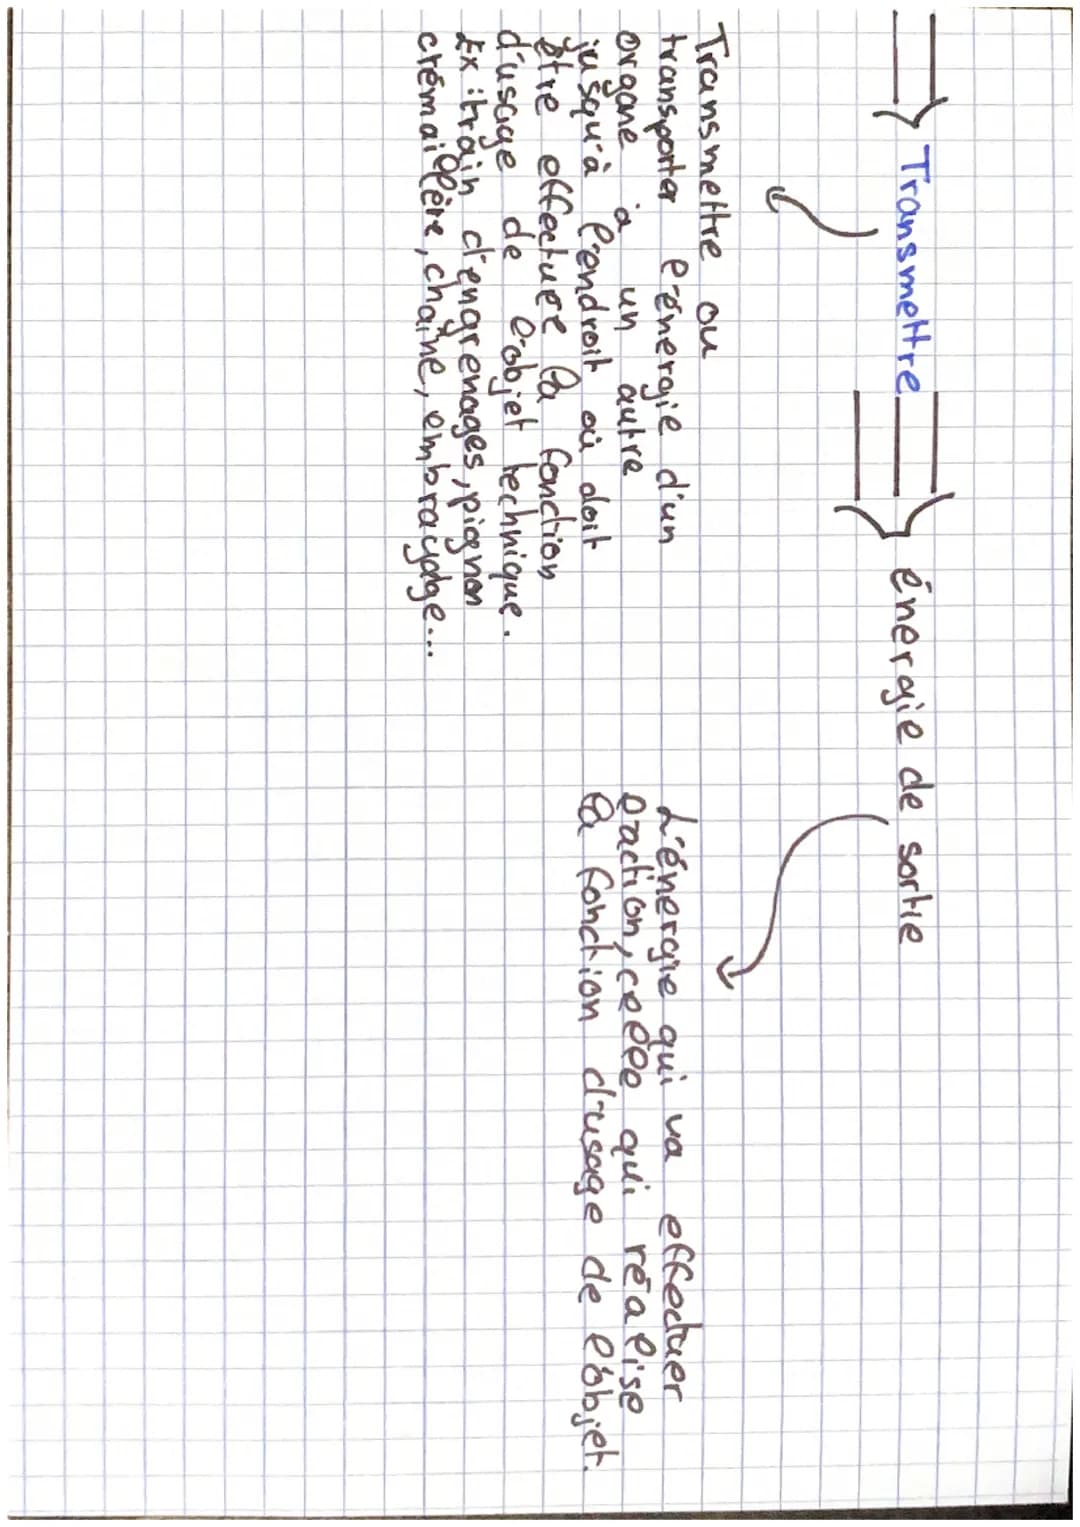 Transmettre
énergie de sortie
Transmettre ou
transporter l'énergie d'un
organe à un autre
jusqu'à l'endroit où doit
être effectuer la fonction
d'usage de l'objet technique.
Ex : train d'engrenages, pignon
crémaillère, chaîne, embrayage...
L'énergie qui va effectuer
l'action, celle qui réalise
la fonction d'usage de l'objet.